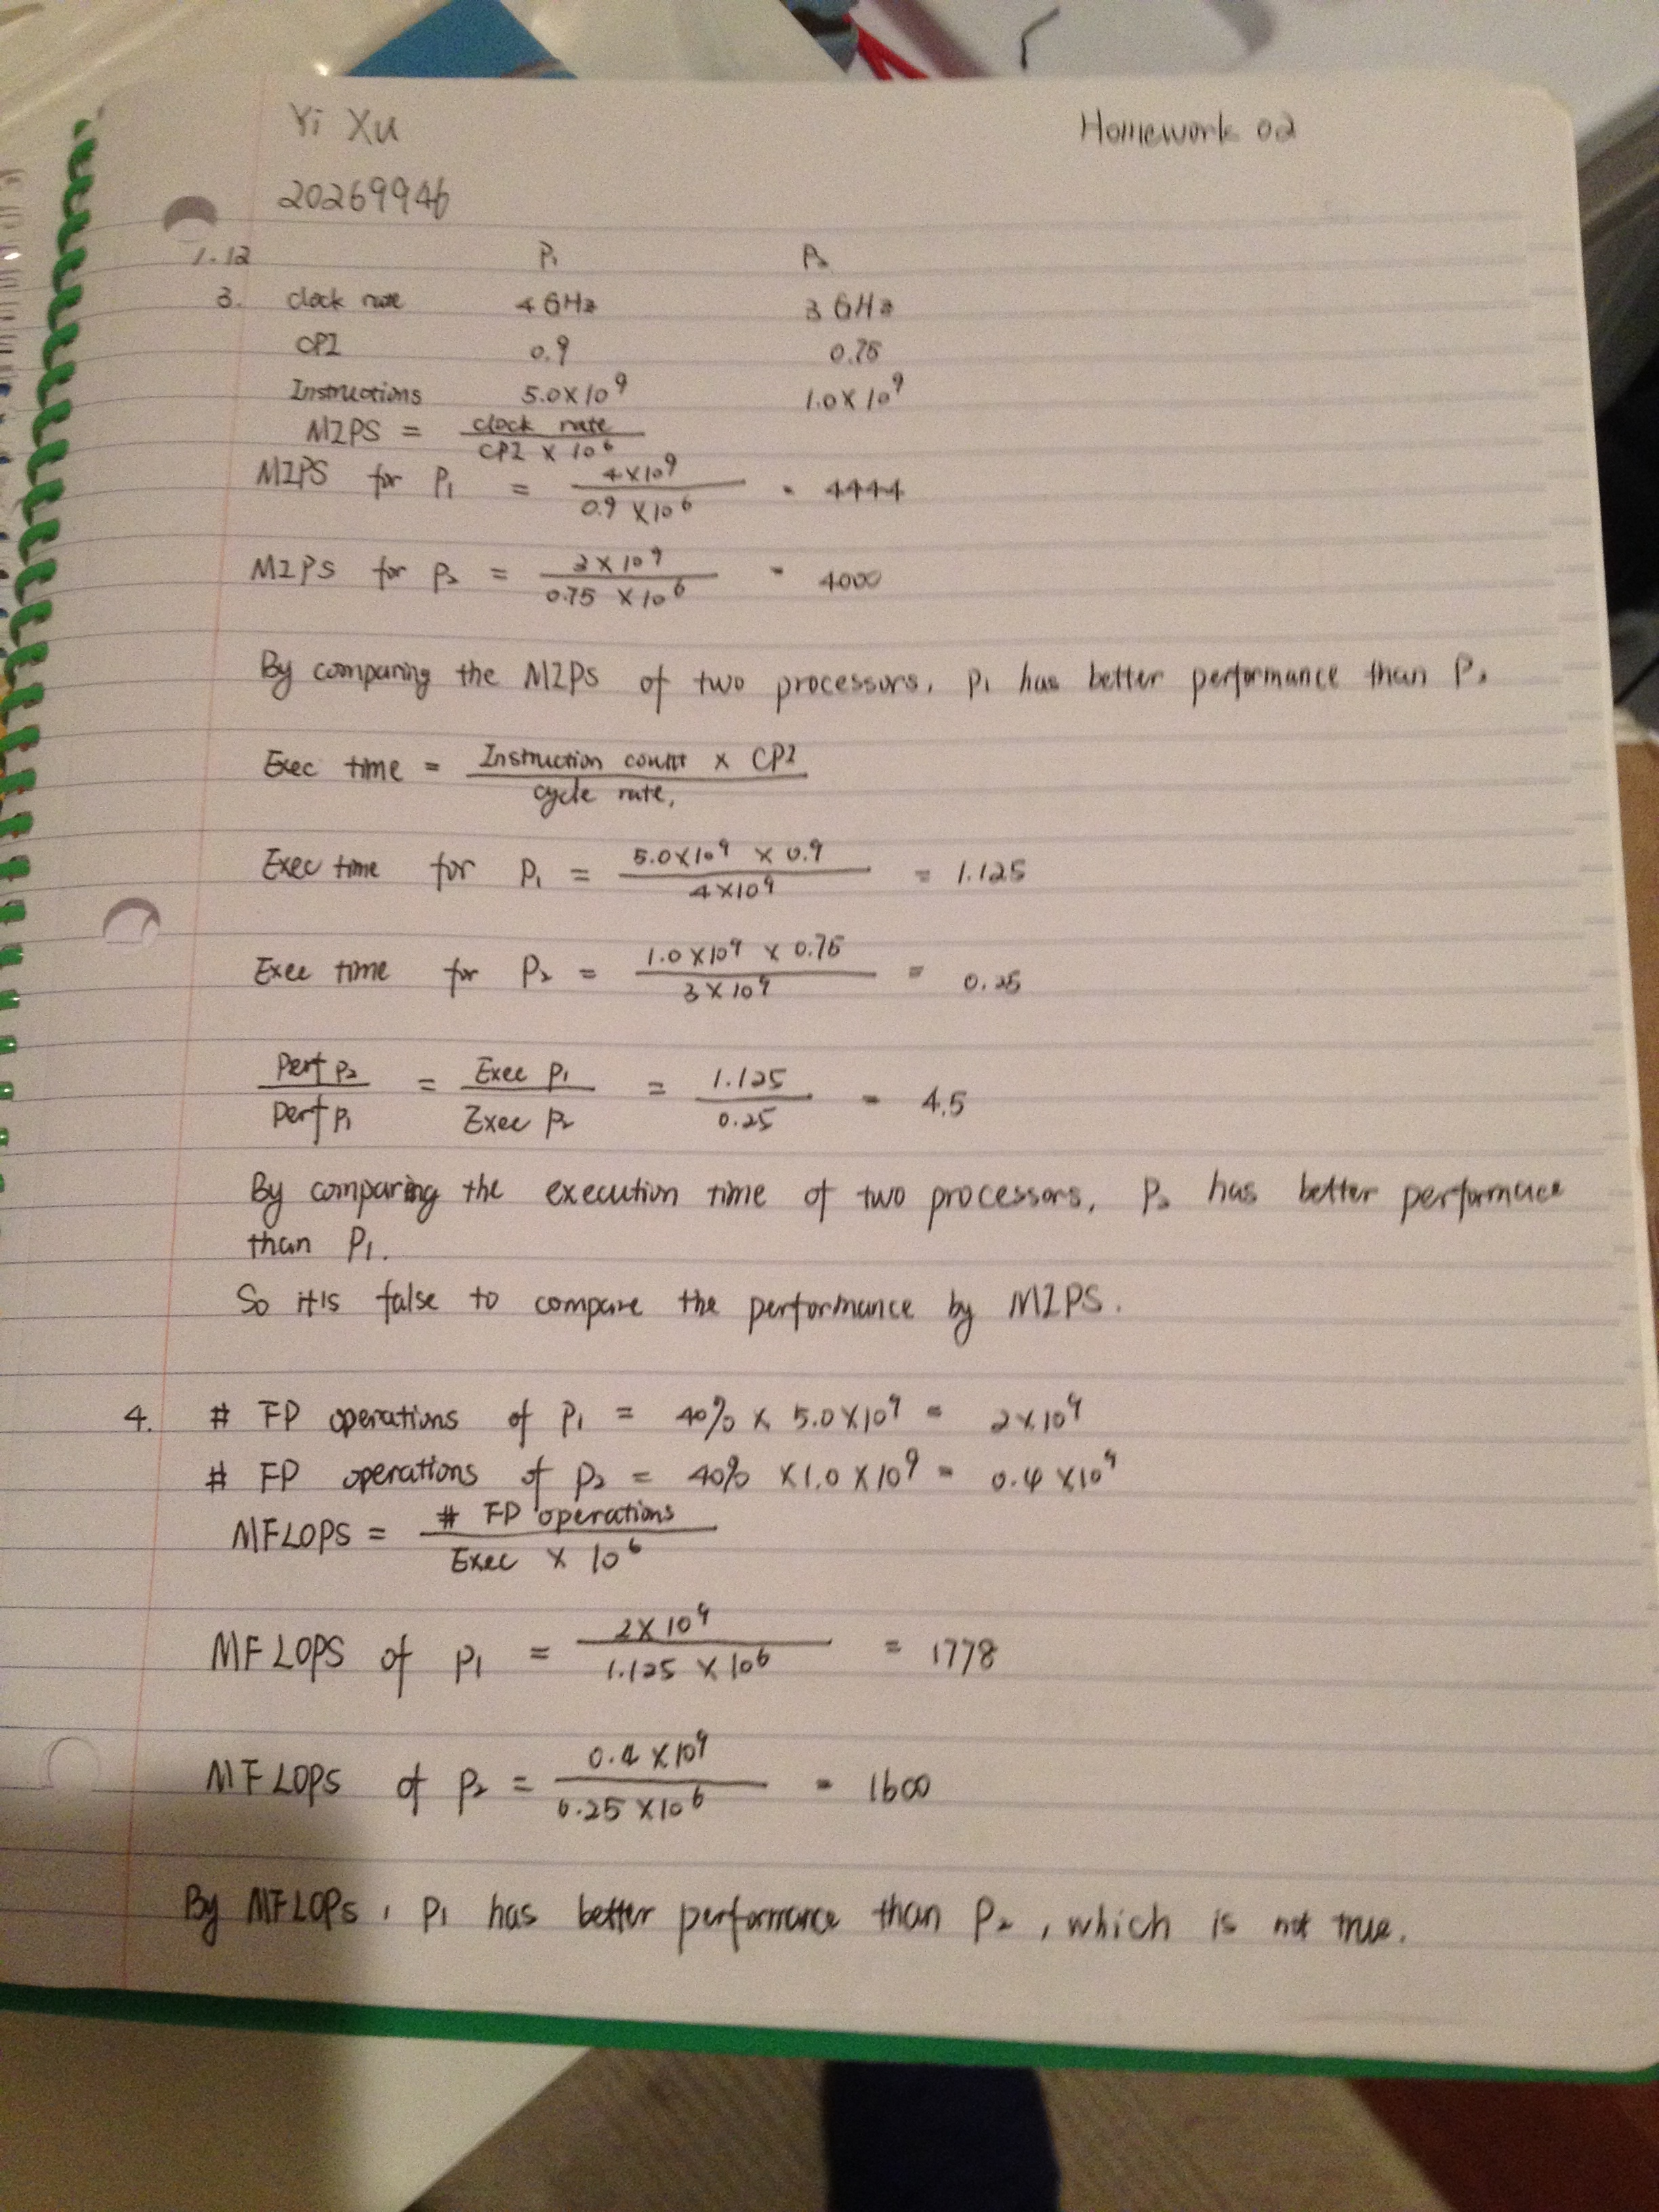 Yi Xu Homework 02
20269946
1.12 P1 P2
3. clock rate 4 GHz 3 GHz
CPI 0.9 0.75
Instructions 5.0×10^9 1.0×10^9
MIPS = clock rate / CPI × 10^6
MIPS for P1 = 4×10^9 / 0.9 × 10^6 = 4444
MIPS for P2 = 3×10^9 / 0.75 × 10^6 = 4000
By comparing the MIPS of two processors, P1 has better performance than P2
Exec time = Instruction count × CPI / cycle rate,
Exec time for P1 = 5.0×10^9 × 0.9 / 4×10^9 = 1.125
Exec time for P2 = 1.0×10^9 × 0.75 / 3×10^9 = 0.25
Perf P2 / Perf P1 = Exec P1 / Exec P2 = 1.125 / 0.25 = 4.5
By comparing the execution time of two processors, P2 has better performance
than P1.
So it is false to compare the performance by MIPS.
4. # FP operations of P1 = 40% × 5.0×10^9 = 2×10^9
# FP operations of P2 = 40% × 1.0×10^9 = 0.4×10^9
MFLOPS = # FP operations / Exec × 10^6
MFLOPS of P1 = 2×10^9 / 1.125 × 10^6 = 1778
MFLOPS of P2 = 0.4×10^9 / 0.25×10^6 = 1600
By MFLOPs, P1 has better performance than P2, which is not true.